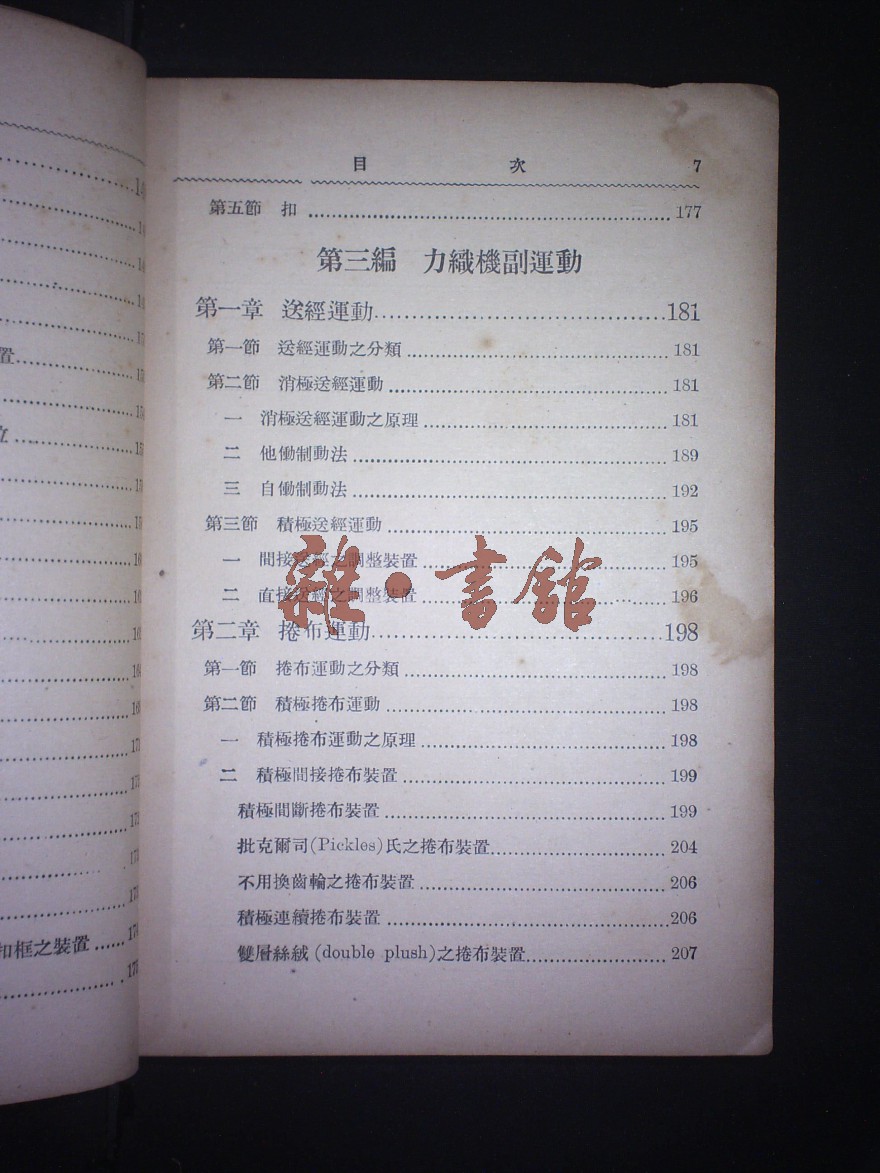 置
扣框之裝置
目 次 7
第五節 扣 177
第三編 力織機副運動
第一章 送經運動 181
第一節 送經運動之分類 181
第二節 消極送經運動 181
一 消極送經運動之原理 181
二 他働制動法 189
三 自働制動法 192
第三節 積極送經運動 195
一 間接送經之調整裝置 195
二 直接送經之調整裝置 196
雜·書館
第二章 捲布運動 198
第一節 捲布運動之分類 198
第二節 積極捲布運動 198
一 積極捲布運動之原理 198
二 積極間接捲布裝置 199
積極間斷捲布裝置 199
批克爾司(Pickles)氏之捲布裝置 204
不用換齒輪之捲布裝置 206
積極連續捲布裝置 206
雙層絲絨(double plush)之捲布裝置 207